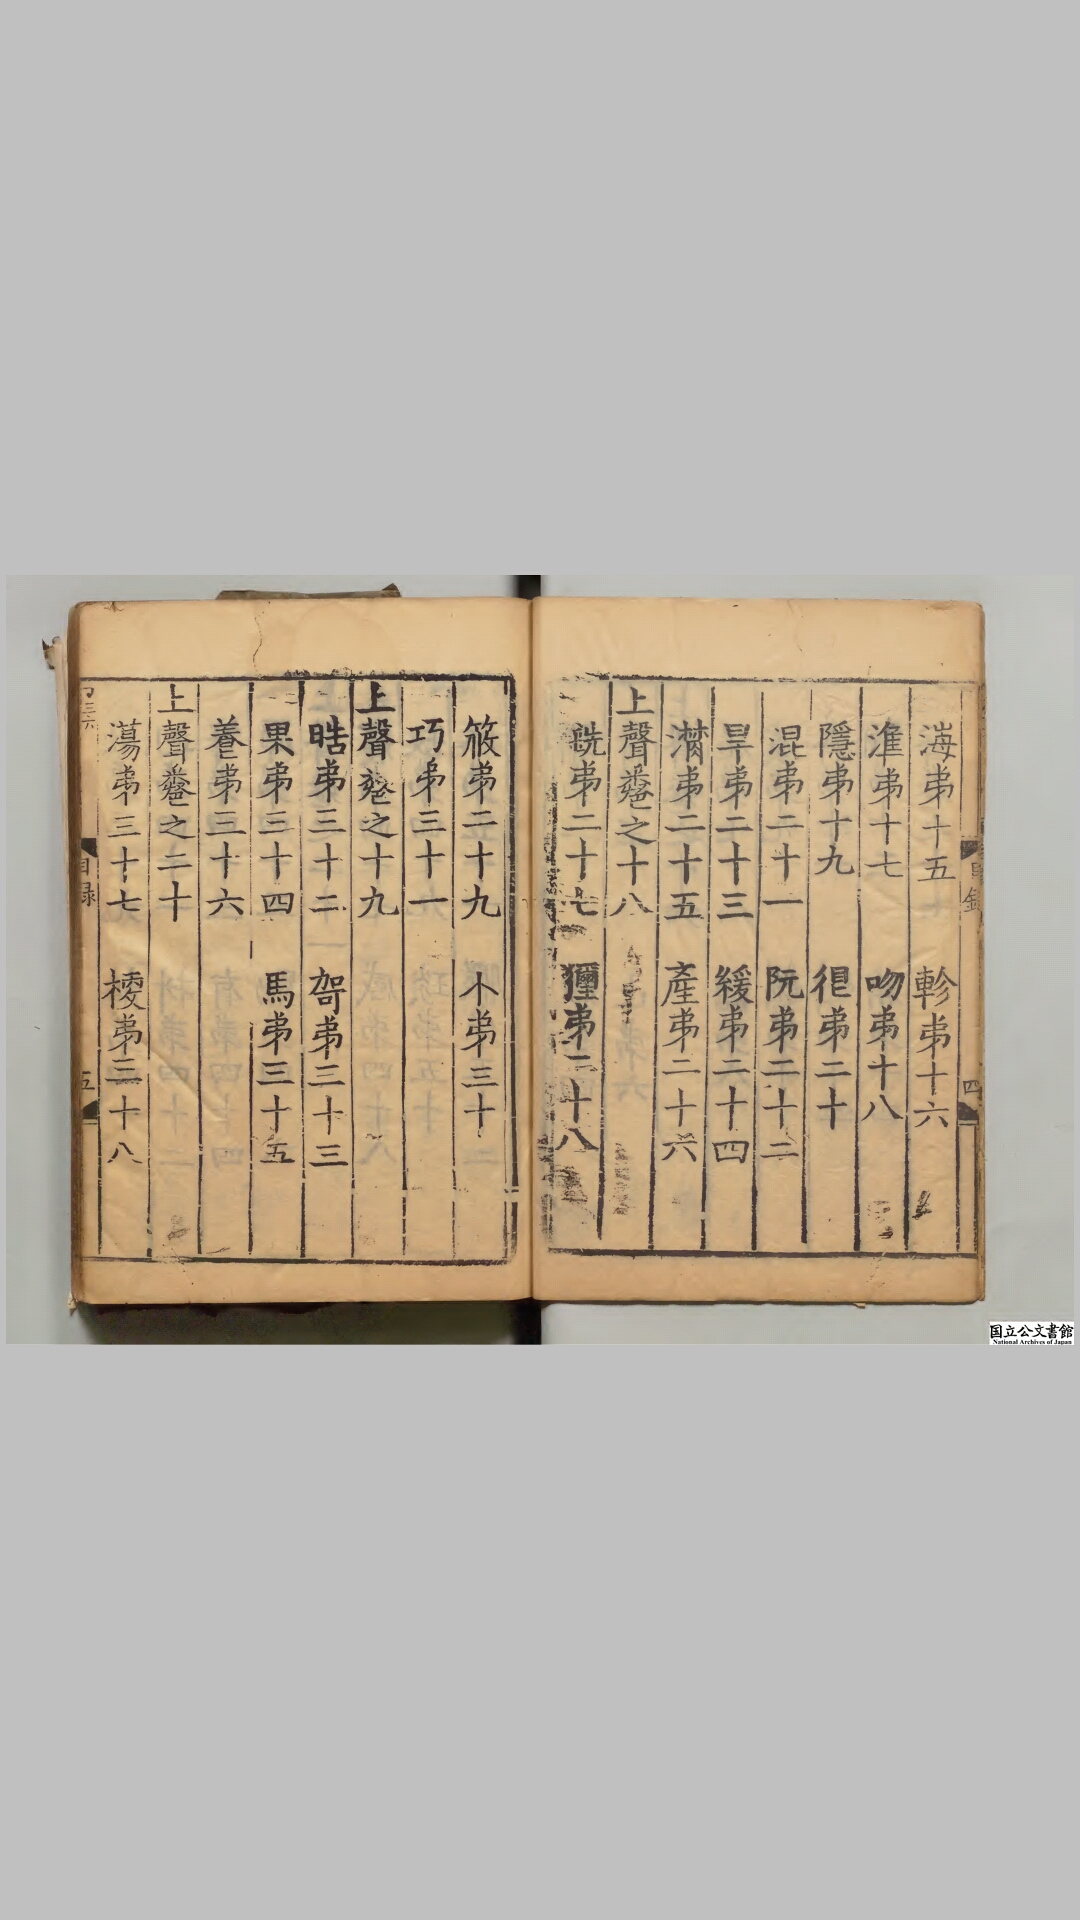 海弟十五　軫弟十六
準弟十七　吻弟十八
隱弟十九　很弟二十
混弟二十一　阮弟二十二
旱弟二十三　緩弟二十四
潸弟二十五　產弟二十六
上聲卷之十八
銑弟二十七　獮弟二十八
目錄　四
筱弟二十九　小弟三十
巧弟三十一
上聲卷之十九
晧弟三十二　哿弟三十三
果弟三十四　馬弟三十五
養弟三十六
上聲卷之二十
蕩弟三十七　梗弟三十八
目録　五
国立公文書館
National Archives of Japan